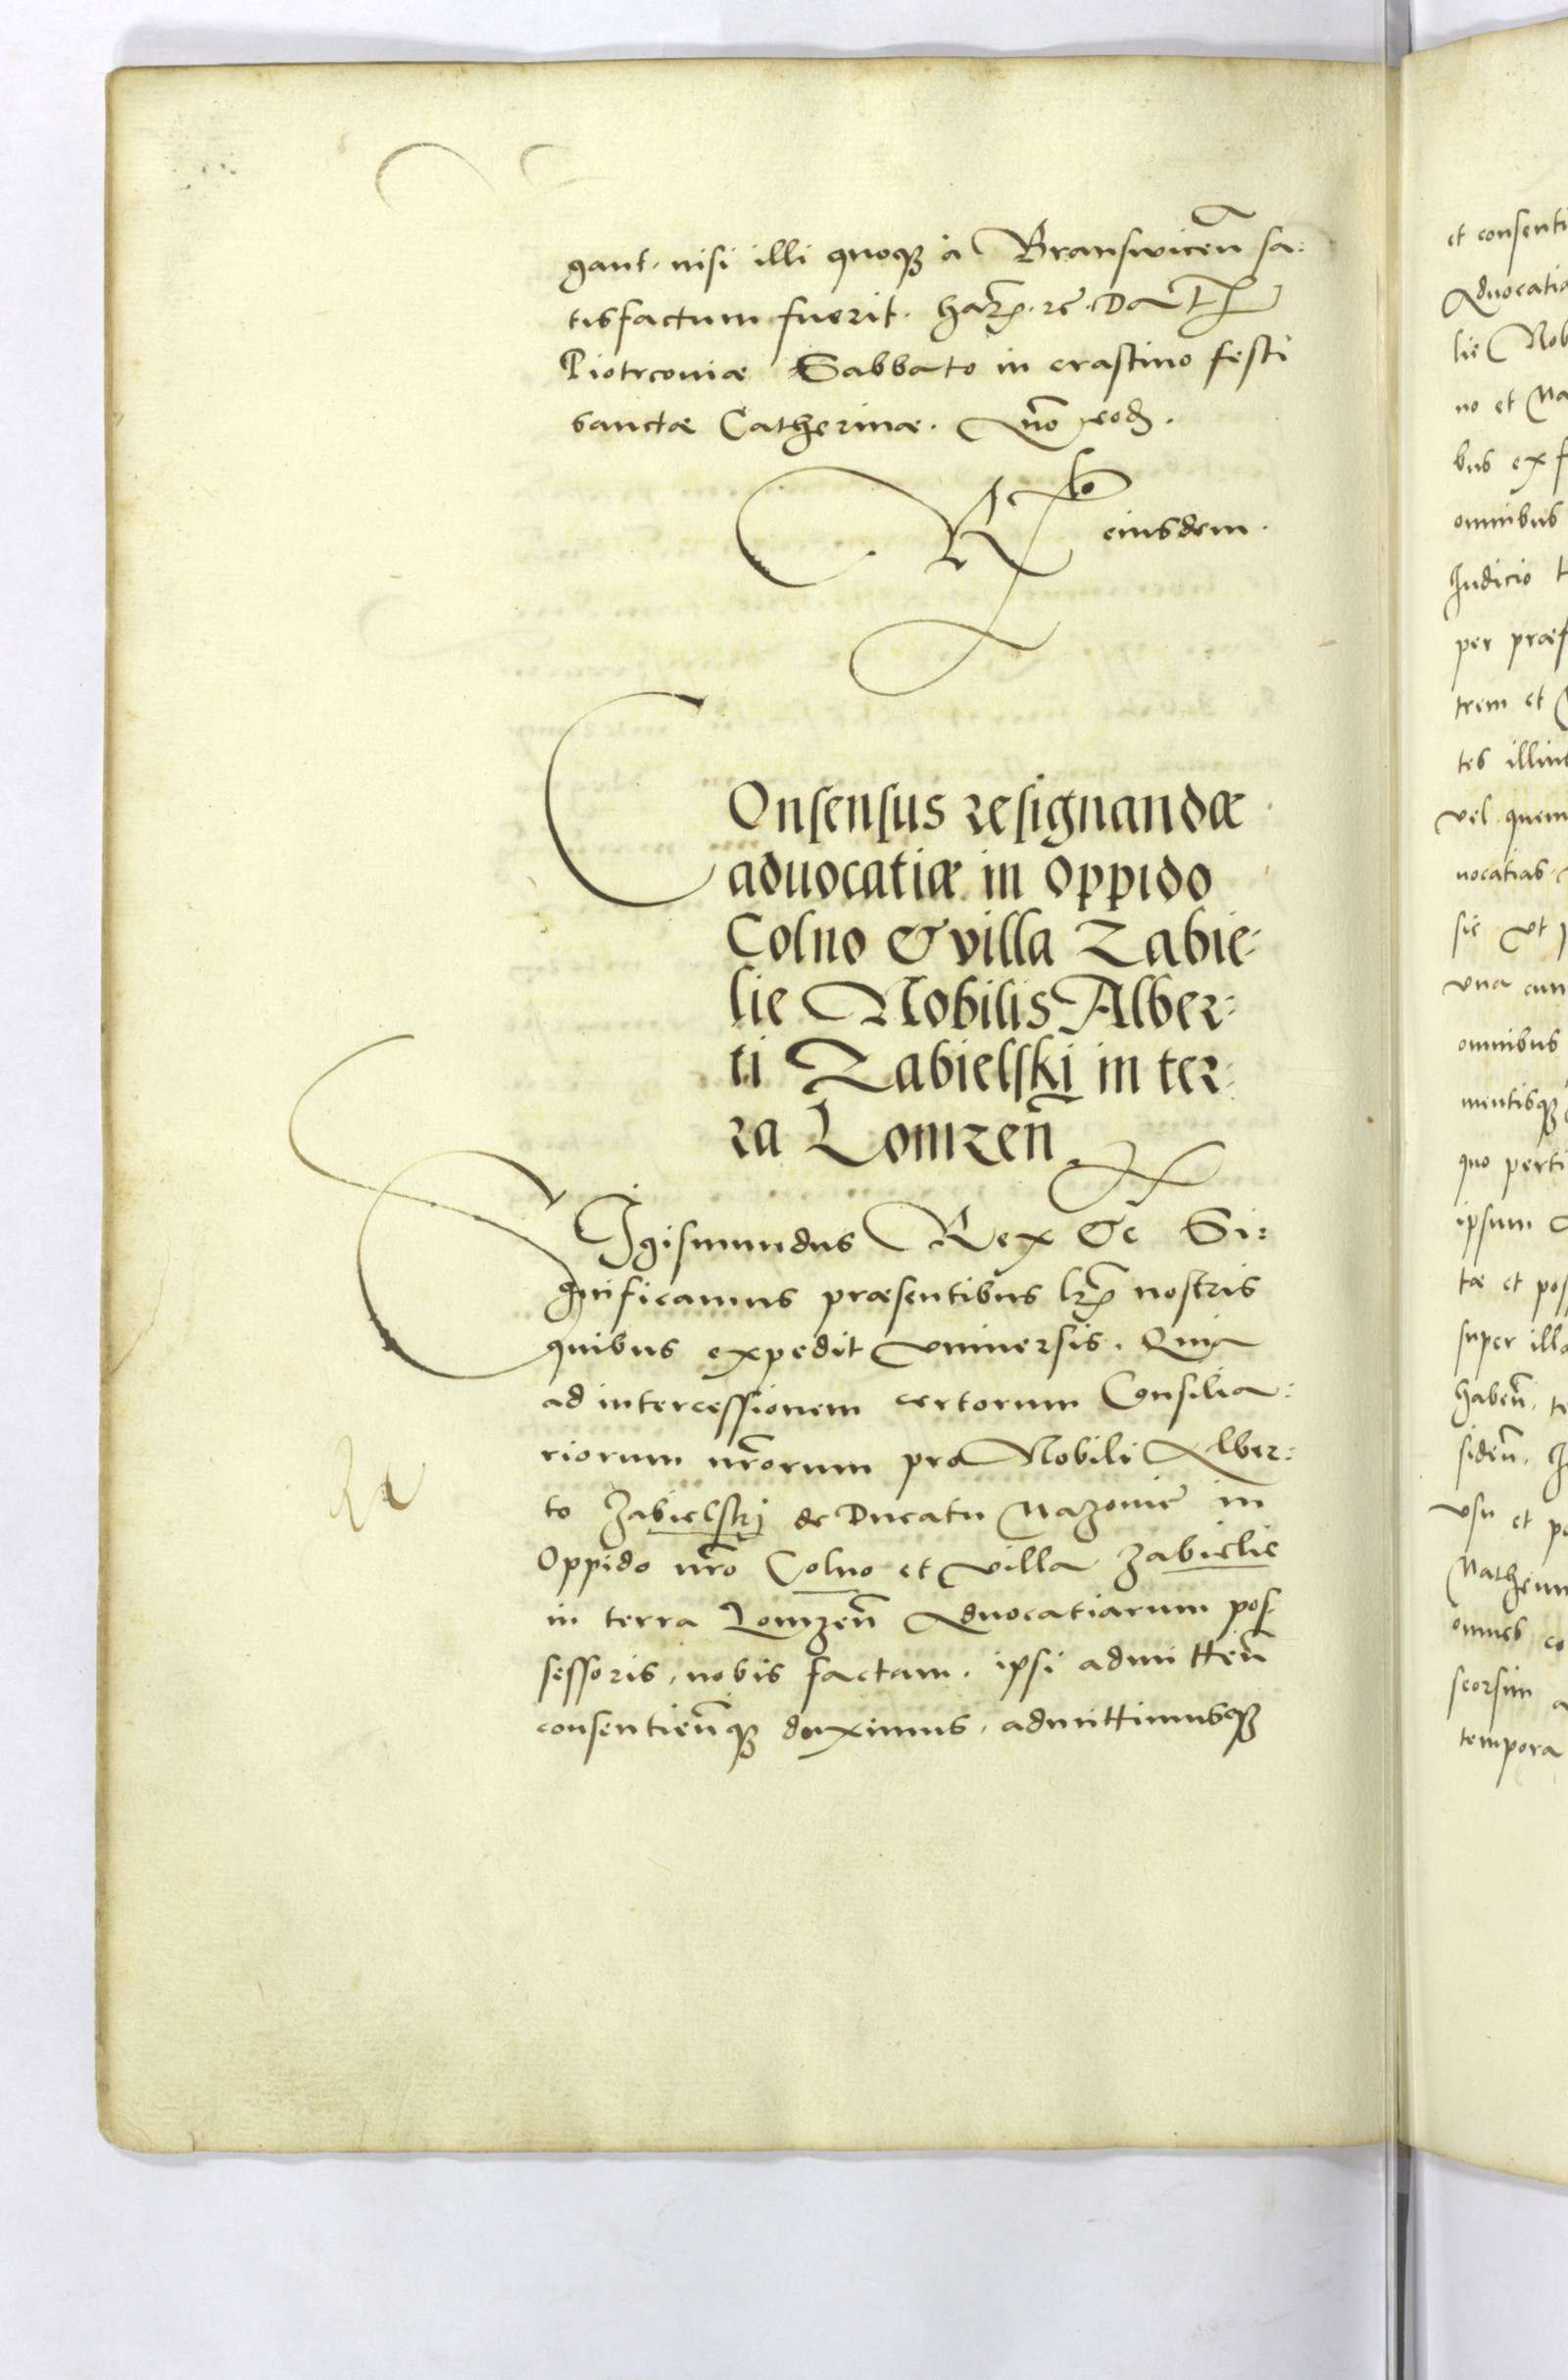 gant. nisi illi quoqꝫ à Branswiceñ sa:
tisfactum fuerit. haꝝ. rẽ. Dat
Piotrconiæ Sabbato in crastino festi
sanctæ Catherinæ. Año eod.
R^to eiusdem.
COnsensus resignandæ
aduocatiæ in oppido
Colno & villa Zabie-
lie Nobilis Alber-
ti Zabielskj in ter-
ra Lomzeñ.
SIgismundus Rex &c Si:
gnificamus præsentibus lrꝭ nostris
quibus expedit vniuersis. Quia
ad intercessionem certorum Consilia:
riorum nr̃orum pro Nobili Alber:
to Zabielskj de Ducatu Mazouiẽ in
Oppido nr̃o Colno et villa Zabielie
in terra Lomzeñ Aduocatiarum pos-
sessoris, nobis factam. ipsi admitteñ
consentieñqꝫ duximus, admittimusqꝫ
et consenti
Aduocatia
lie Nob
no et Ma
bus ex f
omnibus
Iudicio t
per præf
trem et
tes illiut
vel quem
uocatias
sic vt p
vna cum
omnibus
mentisqꝫ
quo perti
ipsum
tæ et pos
super illa
habeñ, te
sideñ.
vsu et pe
Matheum
omnes co
seorsim a
tempora